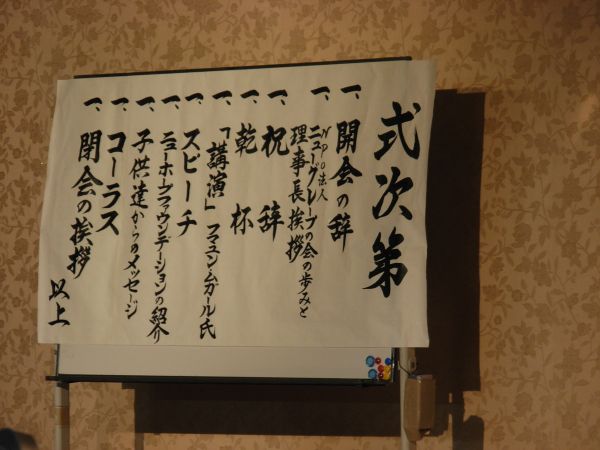 式次第
一、開会の辞
一、NPO法人
ニューグループの会の歩みと
理事長挨拶
一、祝辞
一、乾杯
一、「講演」マユンムガール氏
一、スピーチ
一、ニューホープファウンデーションの紹介
一、子供達からのメッセージ
一、コーラス
一、閉会の挨拶
以上